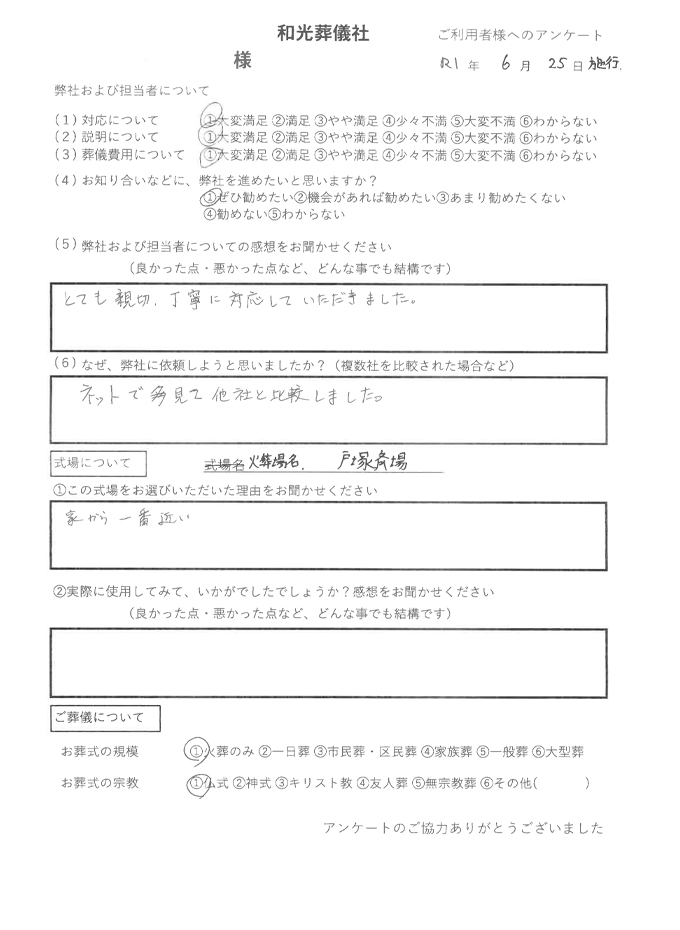 和光葬儀社 ご利用者様へのアンケート
様 R1 年 6 月 25 日 施行.
弊社および担当者について
(1) 対応について ①大変満足 ②満足 ③やや満足 ④少々不満 ⑤大変不満 ⑥わからない
(2) 説明について ①大変満足 ②満足 ③やや満足 ④少々不満 ⑤大変不満 ⑥わからない
(3) 葬儀費用について ①大変満足 ②満足 ③やや満足 ④少々不満 ⑤大変不満 ⑥わからない
(4) お知り合いなどに、弊社を進めたいと思いますか？
①ぜひ勧めたい②機会があれば勧めたい③あまり勧めたくない
④勧めない⑤わからない
(5) 弊社および担当者についての感想をお聞かせください
（良かった点・悪かった点など、どんな事でも結構です）
とても親切、丁寧に対応していただきました。
(6) なぜ、弊社に依頼しようと思いましたか？（複数社を比較された場合など）
ネットで多見て他社と比較しました。
式場について 式場名 火葬場名. 戸塚斎場
①この式場をお選びいただいた理由をお聞かせください
家から一番近い
②実際に使用してみて、いかがでしたでしょうか？感想をお聞かせください
（良かった点・悪かった点など、どんな事でも結構です）
ご葬儀について
お葬式の規模 ①火葬のみ ②一日葬 ③市民葬・区民葬 ④家族葬 ⑤一般葬 ⑥大型葬
お葬式の宗教 ①仏式 ②神式 ③キリスト教 ④友人葬 ⑤無宗教葬 ⑥その他( )
アンケートのご協力ありがとうございました